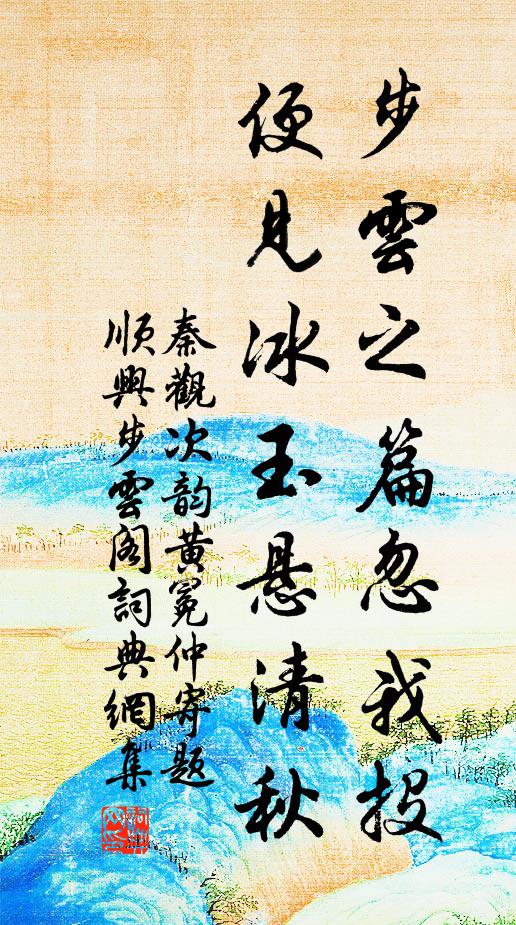 步雲之篇忽我投
便見冰玉悬清秋
秦觀次韵黄冕仲寄題
順興步雲阁詞典網集